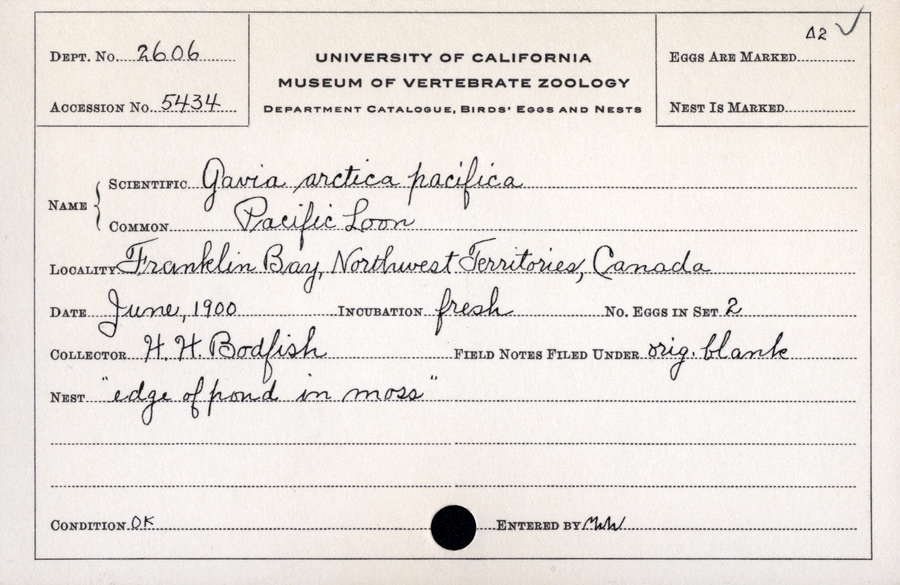 Δ2 ✓
Dept. No. 2606
Accession No. 5434
UNIVERSITY OF CALIFORNIA
MUSEUM OF VERTEBRATE ZOOLOGY
Department Catalogue, Birds' Eggs and Nests
Eggs Are Marked
Nest Is Marked
Name { Scientific Gavia arctica pacifica
Common Pacific Loon
Locality Franklin Bay, Northwest Territories, Canada
Date June, 1900 Incubation fresh No. Eggs in Set 2
Collector H. H. Bodfish Field Notes Filed Under orig. blank
Nest "edge of pond in moss"
Condition OK Entered by